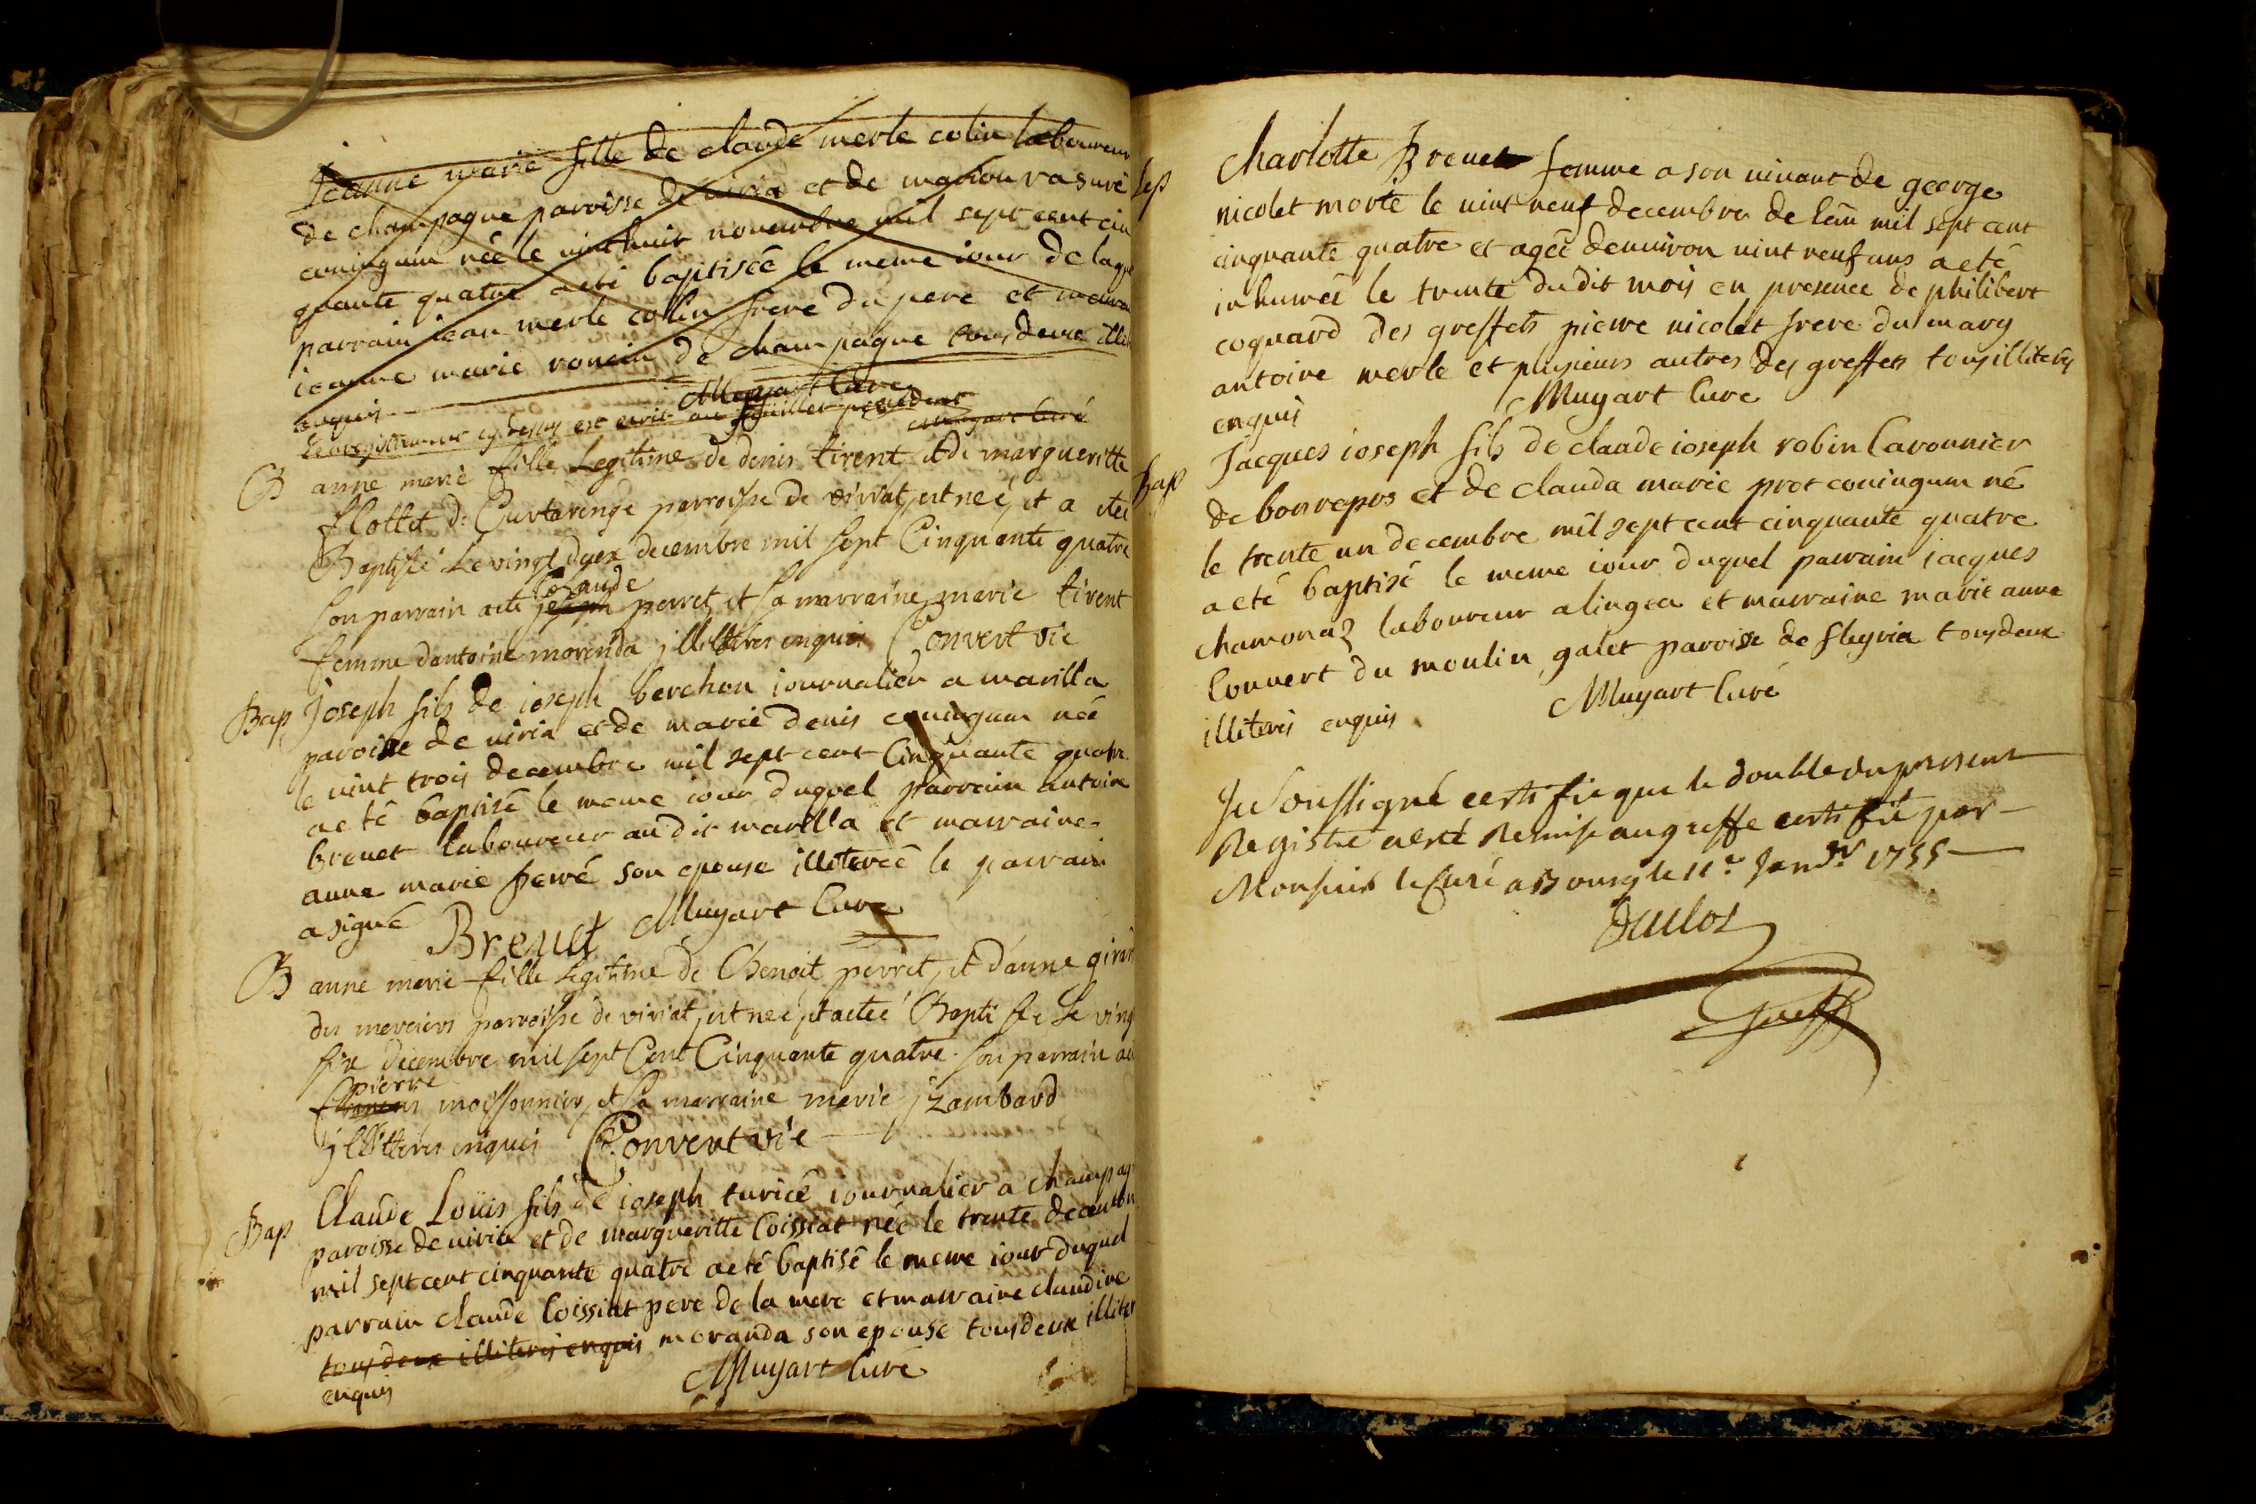 Jeanne marie fille de claude merle colin laboureur
de champagne paroisse de viria et de marion rasuré
coningum néé le vint huit novembre mil sept cent cin
quante quatre a eté baptiséé le meme iour de laque
parrain iean merle colin frere du pere et marrai
ieanne marie roncin de champagne tous deux illit
enquis Muyart Curé
L'enregistrement cy dessus est ecrit au feuillet precedent
Muyart Curé
B anne marie fille Legitime de denis tirent et de margueritte
flottet de Curtaringe parroisse de viriat, est neé, et a eteé
Baptisé Le vingt deux decembre mil sept Cinquante quatre
Son parrain a eté joseph Claude perret et Sa marraine marie tirent
femme d'antoine moranda illitteres enquis Convert vic
Bap Joseph fils de ioseph berchou iournalier a marilla
paroisse de viria et de marie denis coningum néé
le vint trois decembre mil sept cent Cinquante quatre
a eté baptisé le meme iour duquel parrain antoine
brevet laboureur au dit marilla et marraine
anne marie ferré son epouse illiteréé le parrain
a signé Brevet Muyart Curé
B anne marie fille Legitime de Benoit perret, et d'anne girar
des merciers parroisse de viriat, est neé et a eteé Baptisée Le ving
six decembre mil sept Cent Cinquante quatre. Son parrain a e
pierre
moissonnier, et Sa marraine marie jzambard
jllitteres enquis Convert vic
Bap Claude Loüis fils de ioseph turicé iournalier a champag
paroisse de viria et de margueritte Coissiat néé le trente decemb
mil sept cent cinquante quatre a eté baptisé le meme iour duquel
parrain claude Coissiat pere de la mere et marraine claudine
tous deux illiteris enquis moranda son epouse tous deux illiter
enquis Muyart Curé
Sep Charlotte Brevet femme a son vivant de george
nicolet morte le vint neuf decembre de l'an mil sept cent
cinquante quatre et agéé d'environ vint neuf ans a eté
inhuméé le trente du dit mois en presence de philibert
coquard des greffets pierre nicolet frere du mary
antoine merle et plusieurs autres des greffets tous illiteris
enquis Muyart Curé
Bap Jacques ioseph fils de claude ioseph robin Caronnier
de bonrepos et de clauda marie prot coningum né
le trente un decembre mil sept cent cinquante quatre
a eté baptisé le meme iour duquel parrain iacques
chamonaz laboureur a lingea et marraine marie anne
Convert du moulin galet paroisse de fleyria tous deux
illiteris enquis Muyart Curé
Je Soussigné certifie que le double du present
Registre a esté Remis au greffe certifié par
Monsieur le Curé a Bourg le 11e Janvr 1755
Greff